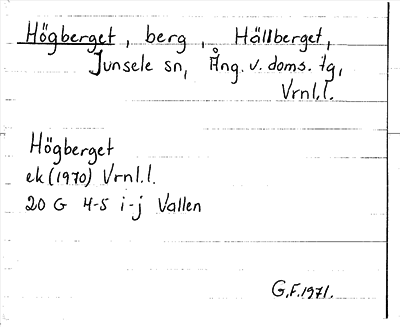 Högberget, berg, Hällberget,
Junsele sn, Ång. v. doms. tg,
Vrnl.l.
Högberget
ek (1970) Vrnl.l.
20 G 4-5 i-j Vallen
G.F. 1971.